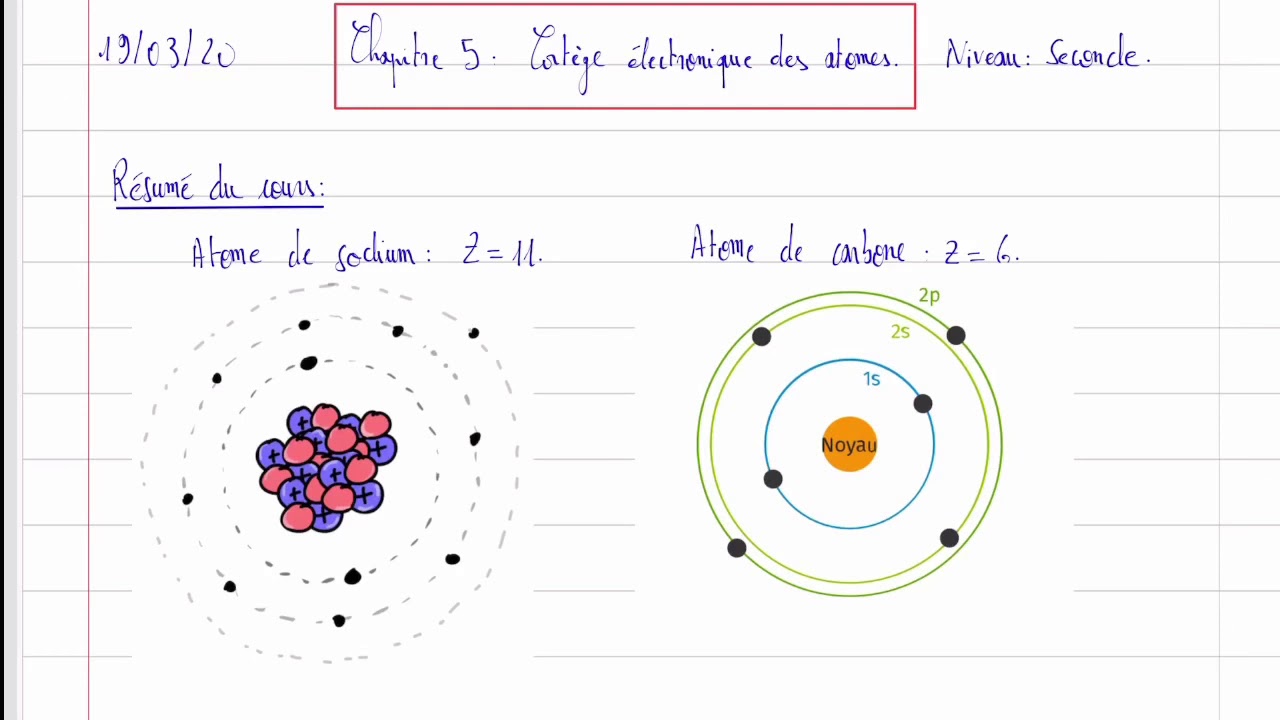 19/03/20 Chapitre 5 : Cortège électronique des atomes. Niveau : Seconde.
Résumé du cours :
Atome de sodium : Z = 11. Atome de carbone : Z = 6.
2p
2s
1s
Noyau
+ + + + + + + + +